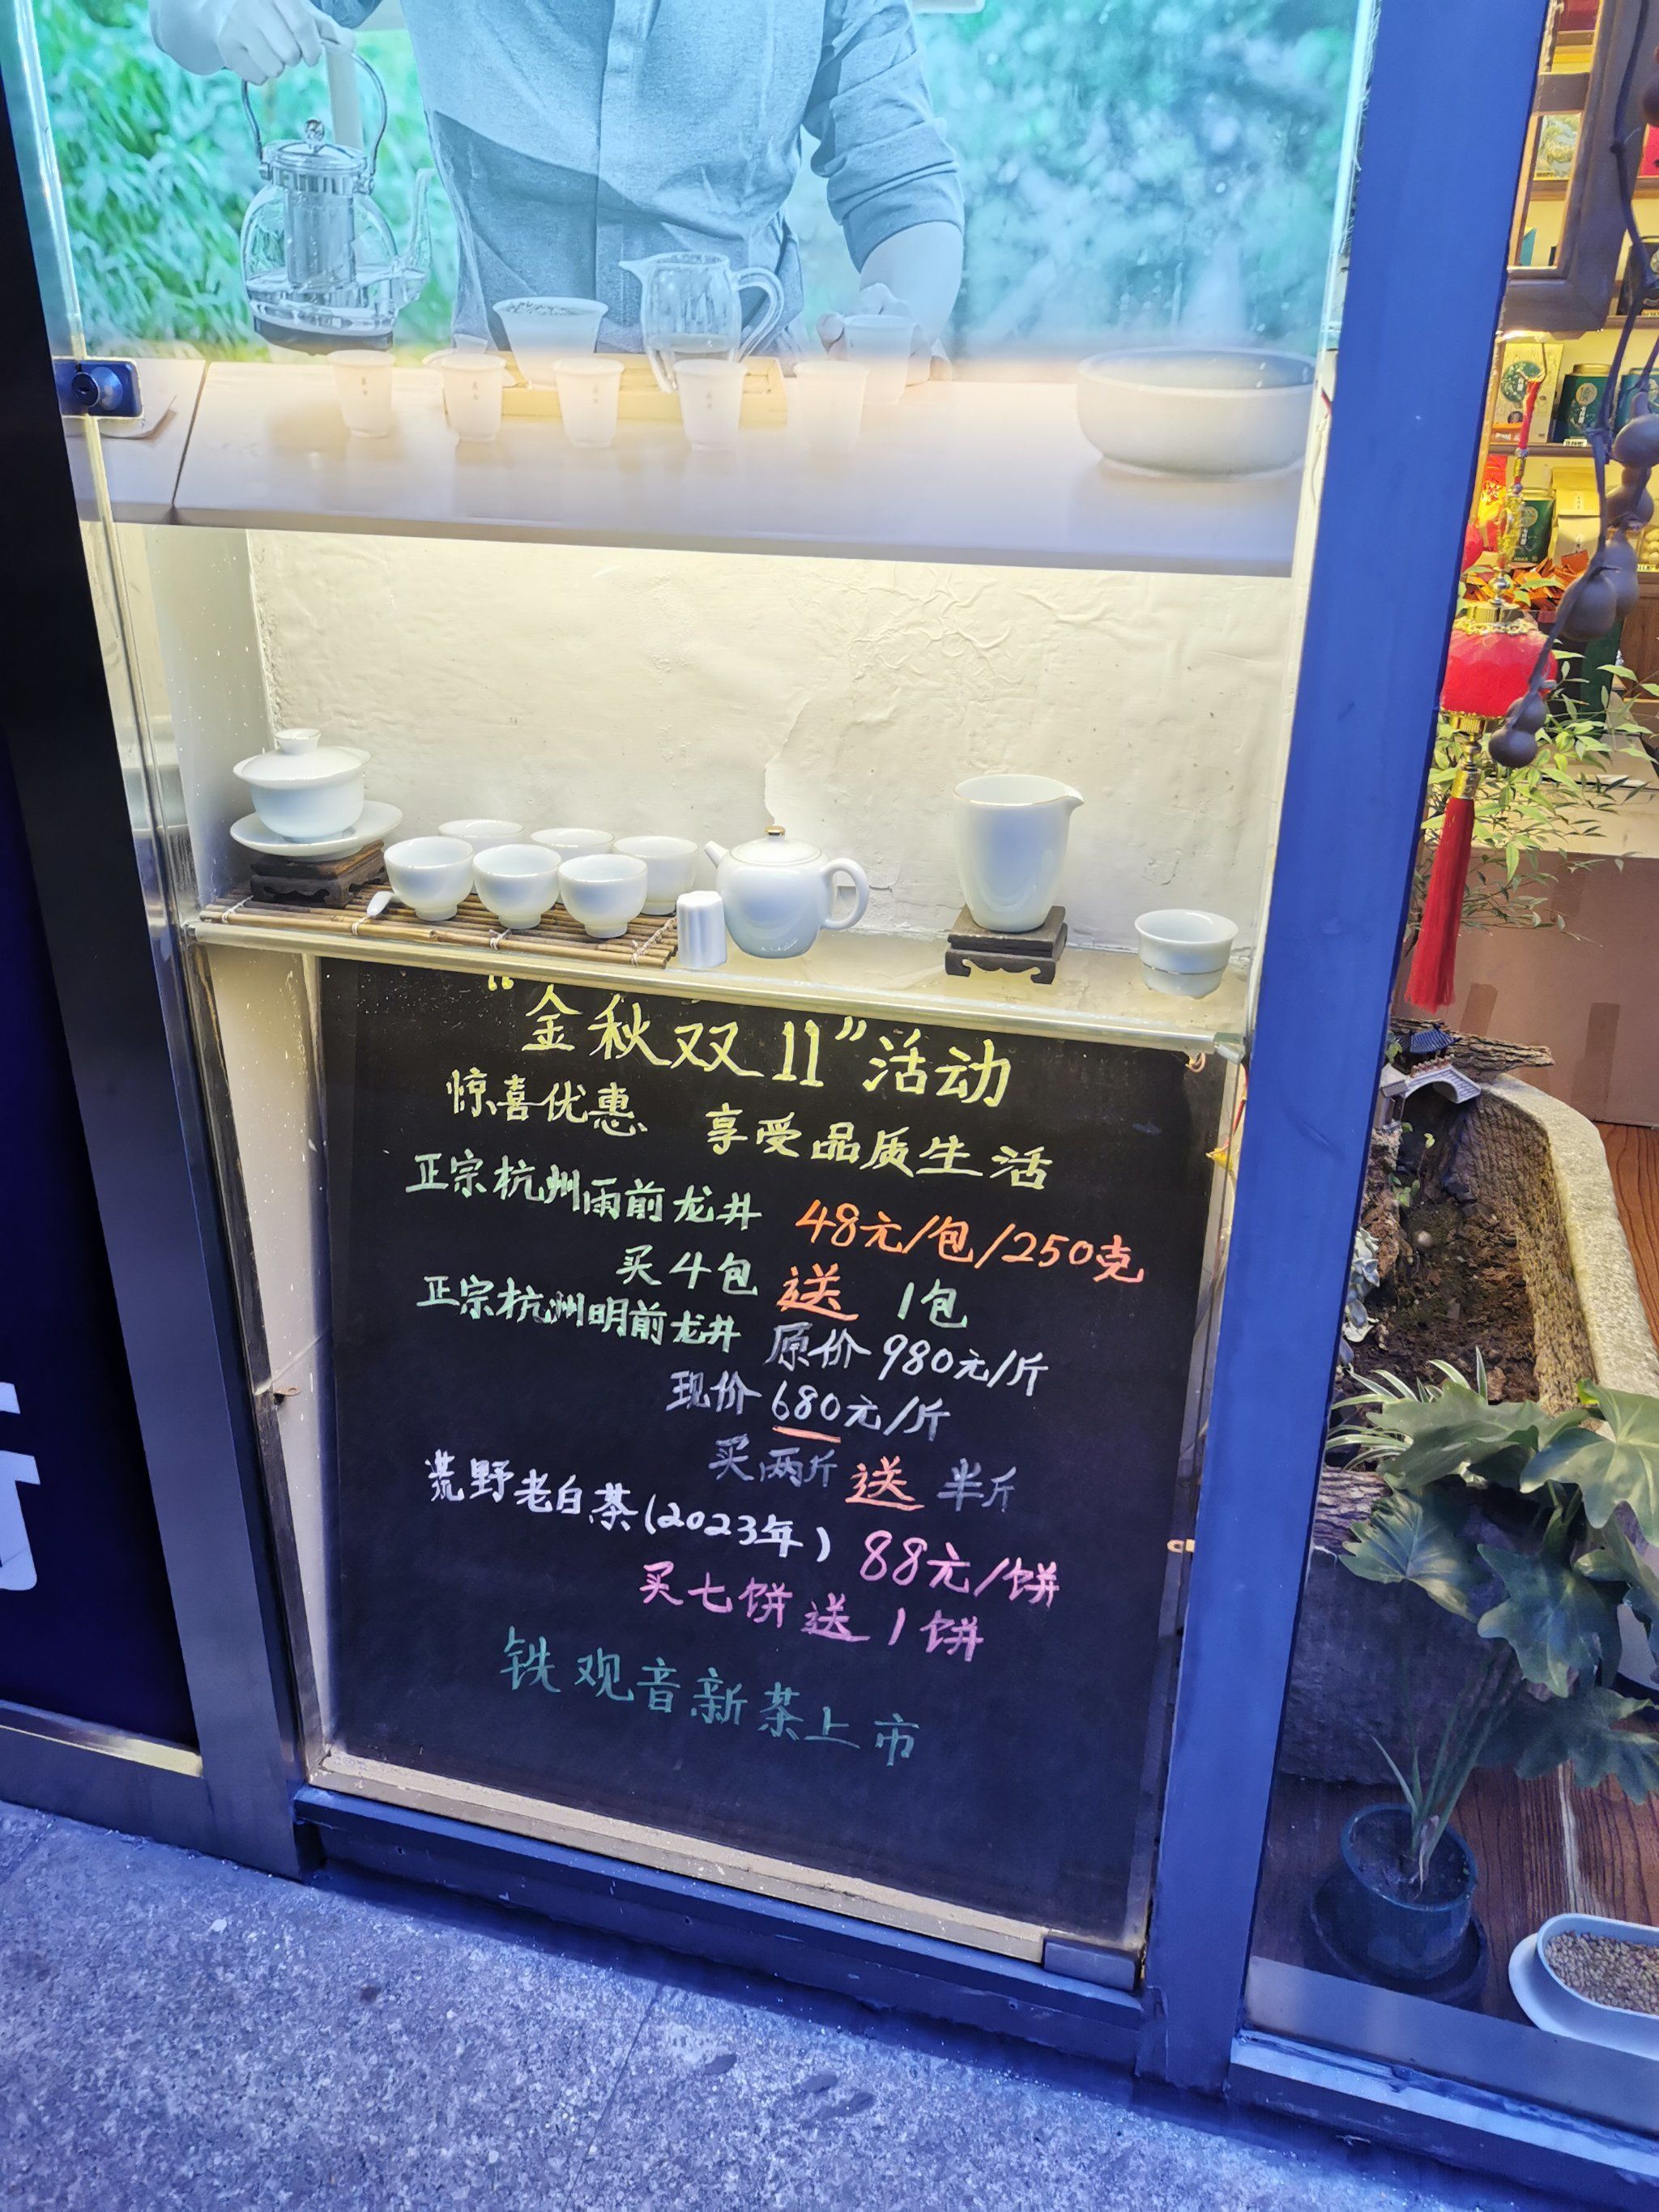 “金秋双11”活动
惊喜优惠 享受品质生活
正宗杭州雨前龙井 48元/包/250克
买4包 送 1包
正宗杭州明前龙井 原价980元/斤
现价680元/斤
买两斤 送 半斤
荒野老白茶(2023年) 88元/饼
买七饼送1饼
铁观音新茶上市